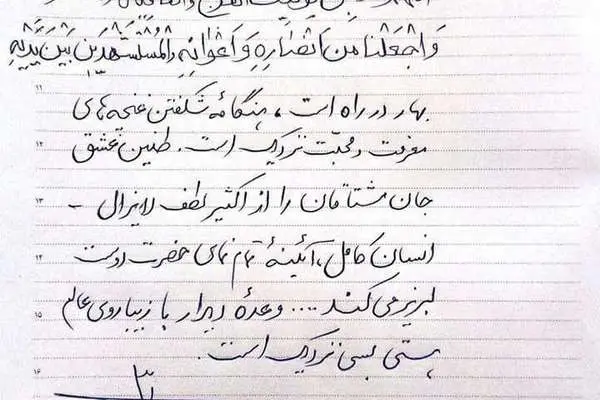 وَ اجْعَلْنَا مِنْ اَنْصَارِهِ وَ اَعْوَانِهِ وَالْمُسْتَشْهَدِینَ بَیْنَ یَدَیْهِ
۱۱
بهار در راه است، هنگامهٔ شکفتن غنچه‌های
۱۲ معرفت و محبّت نزدیک است. طنین عشق
۱۳ جان مشتاقان را از اکثیر لطف لایزال -
۱۴ انسان کامل، آئینهٔ تمام نمای حضرت دوست
۱۵ لبریز می‌کند .... وعدهٔ دیدار با زیباروی عالم
هستی بسی نزدیک است.
۱۶